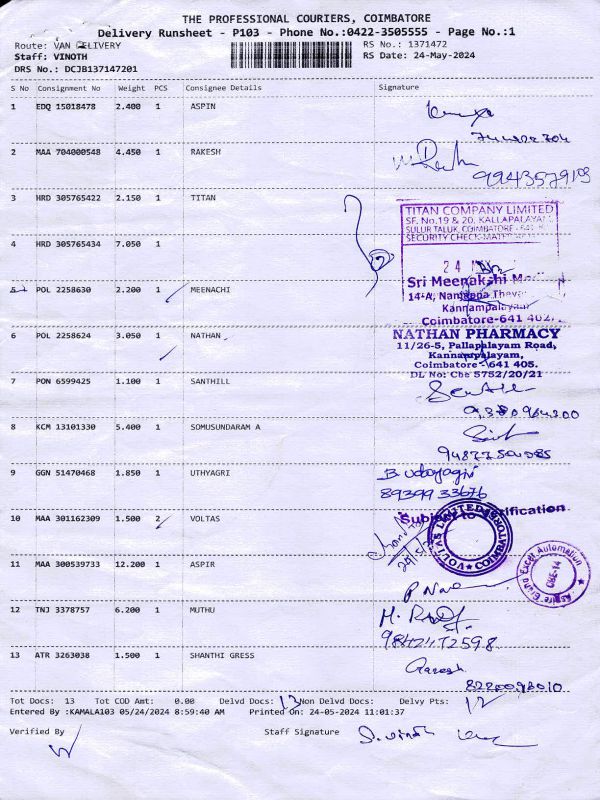 THE PROFESSIONAL COURIERS, COIMBATORE
Delivery Runsheet - P103 - Phone No.:0422-3505555 - Page No.:1
Route: VAN DELIVERY RS No.: 1371472
Staff: VINOTH RS Date: 24-May-2024
DRS No.: DCJB137147201
S No Consignment No Weight PCS Consignee Details Signature
1 EDQ 15018478 2.400 1 ASPIN
2 MAA 704000548 4.450 1 RAKESH
9943579109
3 HRD 305765422 2.150 1 TITAN
TITAN COMPANY LIMITED
SF. No.19 & 20, KALLAPALAYAM
SULUR TALUK, COIMBATORE - 641
SECURITY CHECK-MATERIAL
4 HRD 305765434 7.050 1
24
5 POL 2258630 2.200 1 MEENACHI
Sri Meenakshi
14-A,
Kannampalayam
Coimbatore-641 402
6 POL 2258624 3.050 1 NATHAN
NATHAN PHARMACY
11/26-5, Pallapalayam Road,
Kannampalayam,
Coimbatore-641 405.
DL No: Cbe 5752/20/21
7 PON 6599425 1.100 1 SANTHILL
8 KCM 13101330 5.400 1 SOMUSUNDARAM A
9 GGN 51470468 1.850 1 UTHYAGRI
B. Udayagiri
8939933676
10 MAA 301162309 1.500 2 VOLTAS
Subject to Verification
VOLTAS LIMITED COIMBATORE
11 MAA 300539733 12.200 1 ASPIR
Excel Automation
CBE-14
12 TNJ 3378757 6.200 1 MUTHU
9842472598
13 ATR 3263038 1.500 1 SHANTHI GRESS
Tot Docs: 13 Tot COD Amt: 0.00 Delvd Docs: 13 Non Delvd Docs: Delvy Pts: 12
Entered By :KAMALA103 05/24/2024 8:59:40 AM Printed On: 24-05-2024 11:01:37
Verified By Staff Signature S. Vinoth